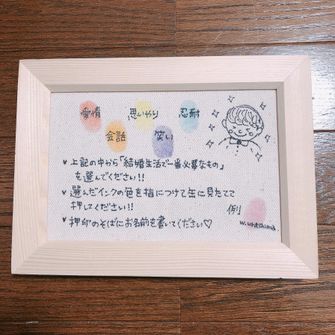 愛情 思いやり 忍耐
会話 笑い
✓ 上記の中から「結婚生活で一番大事なもの」
を選んでください!!
✓ 選んだインクの色を指につけて缶に見たてて
押してください!!
例
✓ 押印のそばにお名前を書いてください♡